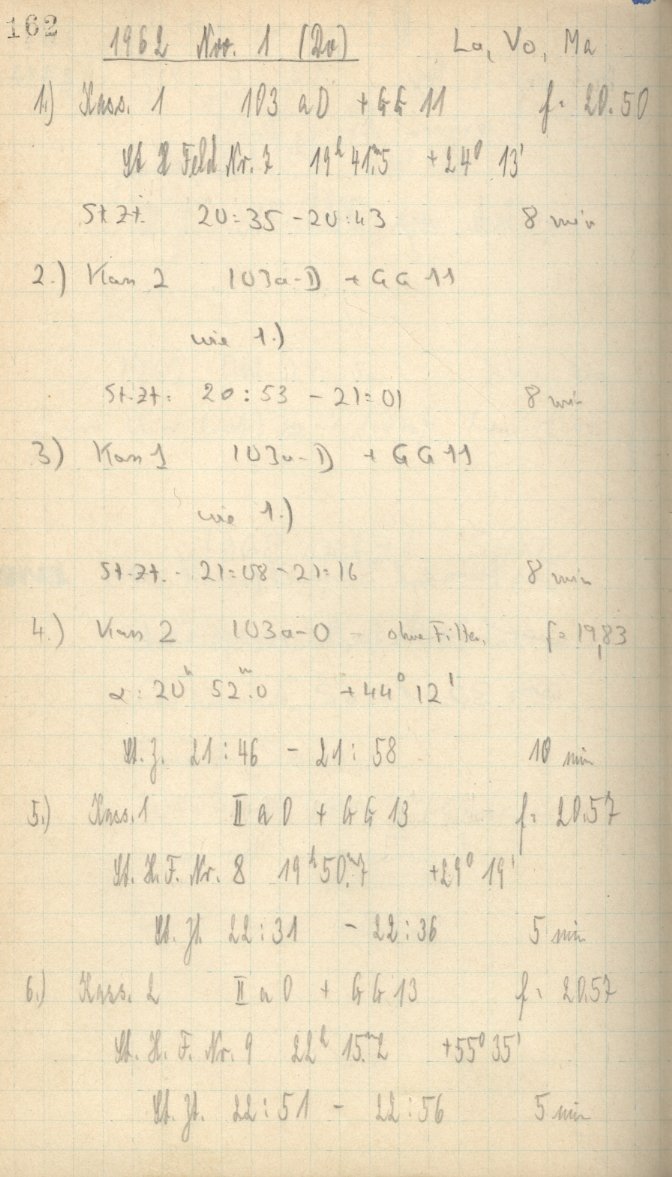 162
1962 Nov. 1 (Do) Lo, Vo, Ma
1.) Kass. 1 103 a D + GG 11 f = 20.50
St H Feld Nr. 7 19h 41m.5 +24° 13'
St. Zt. 20:35 - 20:43 8 min
2.) Kass 2 103a-D + GG 11
wie 1.)
St. Zt: 20:53 - 21:01 8 min
3) Kass 1 103a-D + GG 11
wie 1.)
St. Zt. - 21:08 - 21:16 8 min
4.) Kass 2 103a-O - ohne Filter. f = 19,83
α: 20h 52m.0 +44° 12'
St. Z. 21:46 - 21:58 10 min
5.) Kass. 1 II a O + GG 13 f = 20.57
St. H. F. Nr. 8 19h 50m.7 +29° 19'
St. Zt. 22:31 - 22:36 5 min
6.) Kass. 2 II a O + GG 13 f = 20.57
St. H. F. Nr. 9 22h 15m.2 +55° 35'
St. Zt. 22:51 - 22:56 5 min